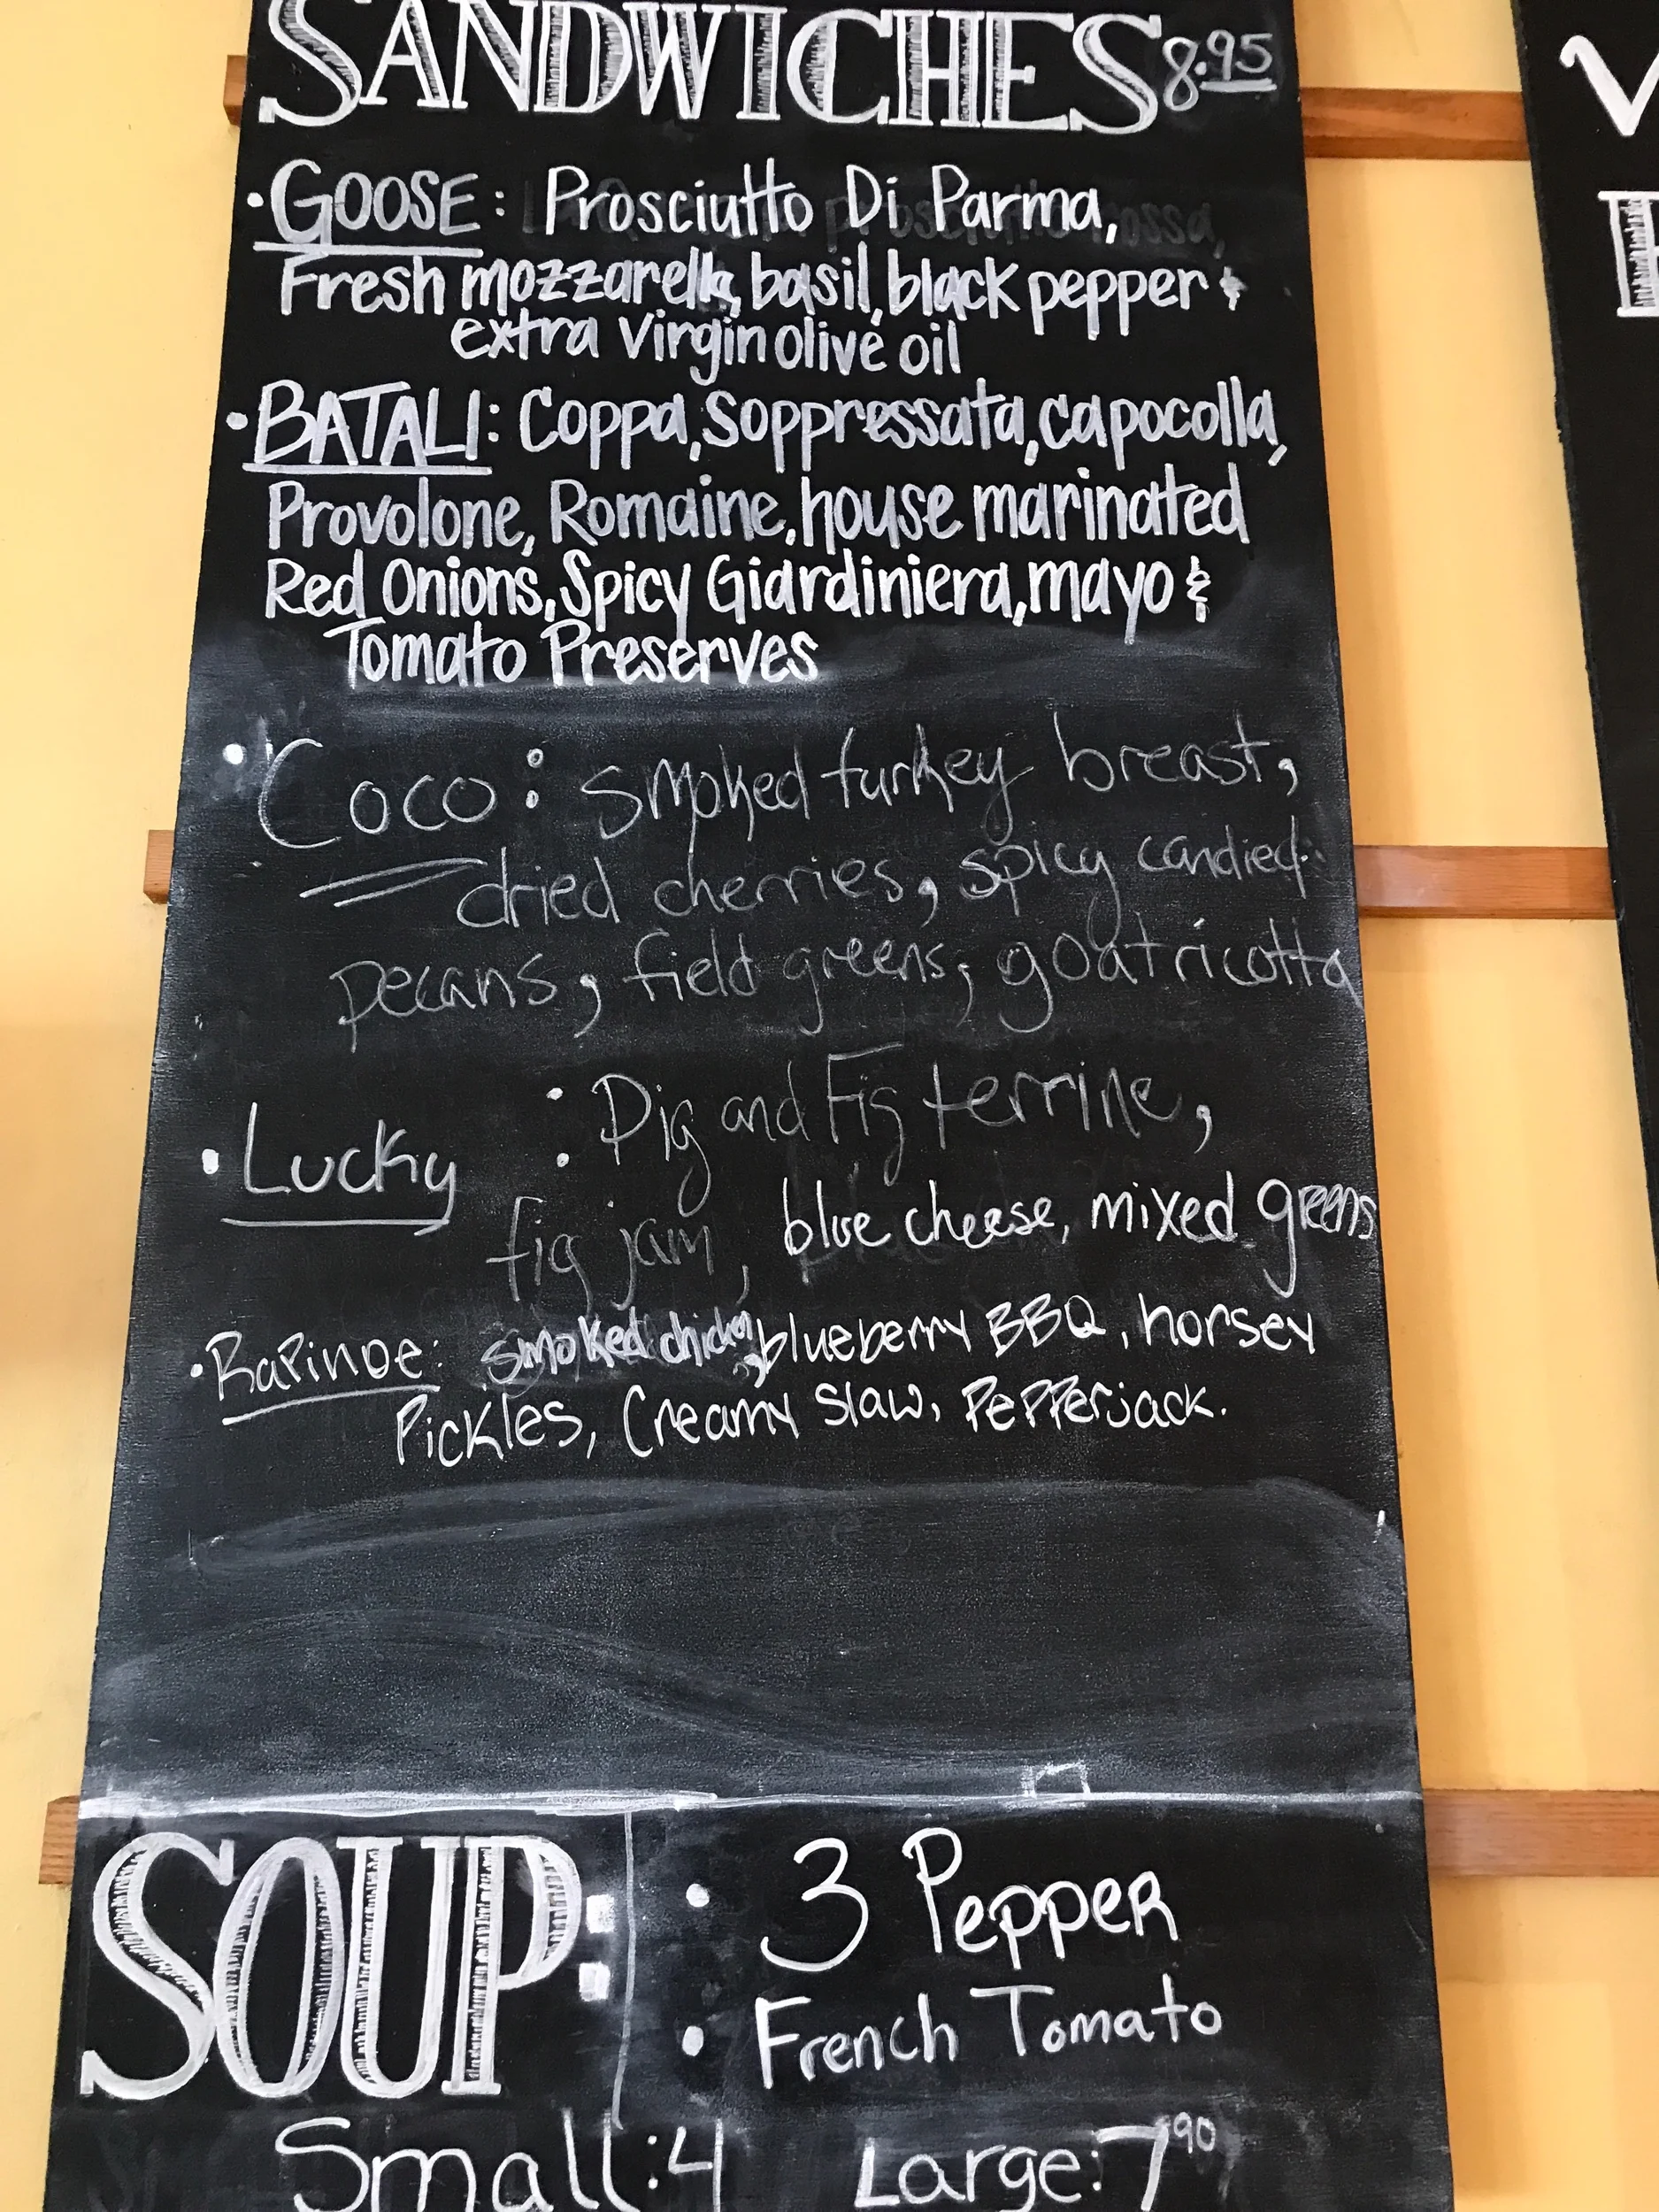 SANDWICHES 8.95
• GOOSE: Prosciutto Di Parma,
Fresh mozzarella, basil, black pepper &
extra virgin olive oil
• BATALI: Coppa, Soppressata, capocolla,
Provolone, Romaine, house marinated
Red Onions, Spicy Giardiniera, mayo &
Tomato Preserves
• Coco: smoked turkey breast,
dried cherries, spicy candied
pecans, field greens, goat ricotta
• Lucky : Pig and Fig terrine,
fig jam, blue cheese, mixed greens
• Rapinoe: smoked chicken, blueberry BBQ, horsey
Pickles, Creamy Slaw, Pepperjack.
SOUP:
• 3 Pepper
• French Tomato
Small: 4 Large: 7.90